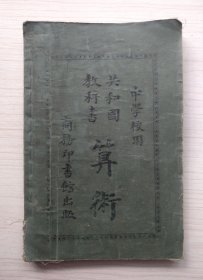 中學校用
共和國
教科書
算術
商務印書館出版